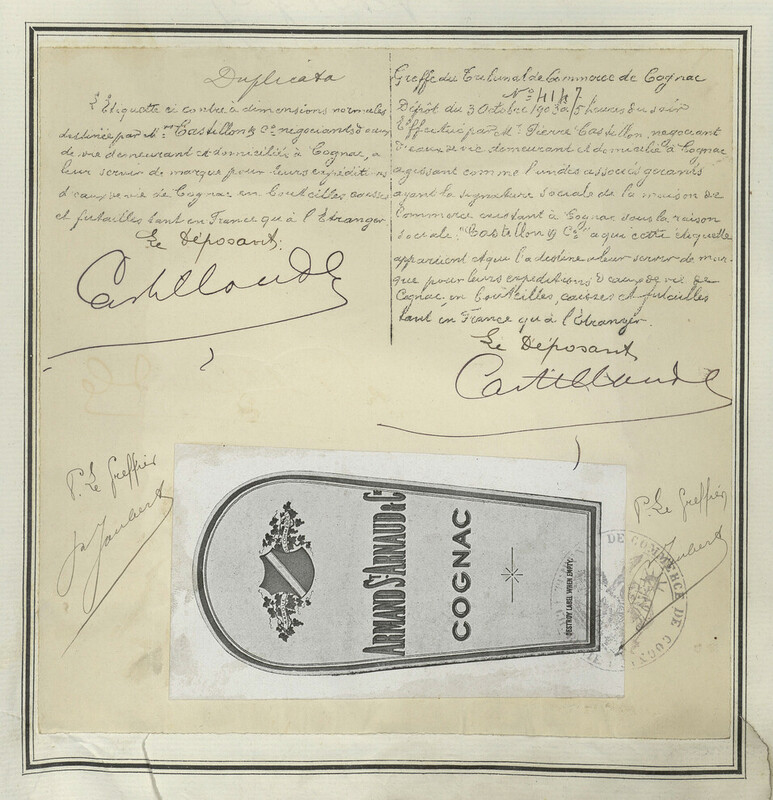 Duplicata
L'Etiquette ci contre à dimensions normales
destinée par Mrs Castillon & Cie négociants d'eaux
de vie demeurant et domiciliés à Cognac, à
leur servir de marque pour leurs expéditions
d'eaux de vie de Cognac en bouteilles caisses
et futailles tant en France qu'à l'Etranger
Le Déposant:
Greffe du Tribunal de Commerce de Cognac
No 4147
Dépôt du 3 Octobre 1903 à 5 heures du soir
Effectué par Mr Pierre Castillon, négociant
d'eaux de vie demeurant et domicilié à Cognac
agissant comme l'un des associés gérants
ayant la signature sociale de la maison de
Commerce existant à Cognac sous la raison
sociale "Castillon & Cie" à qui cette étiquette
appartient et qui l'a destinée à leur servir de mar-
que pour leurs expéditions d'eaux de vie de
Cognac en bouteilles, caisses et futailles
tant en France qu'à l'Etranger.
Le Déposant
P. Le Greffier
Joubert
P. Le Greffier
Joubert
ARMAND ST ARNAUD & Co
COGNAC
DESTROY LABEL WHEN EMPTY
DE COMMERCE DE COGN